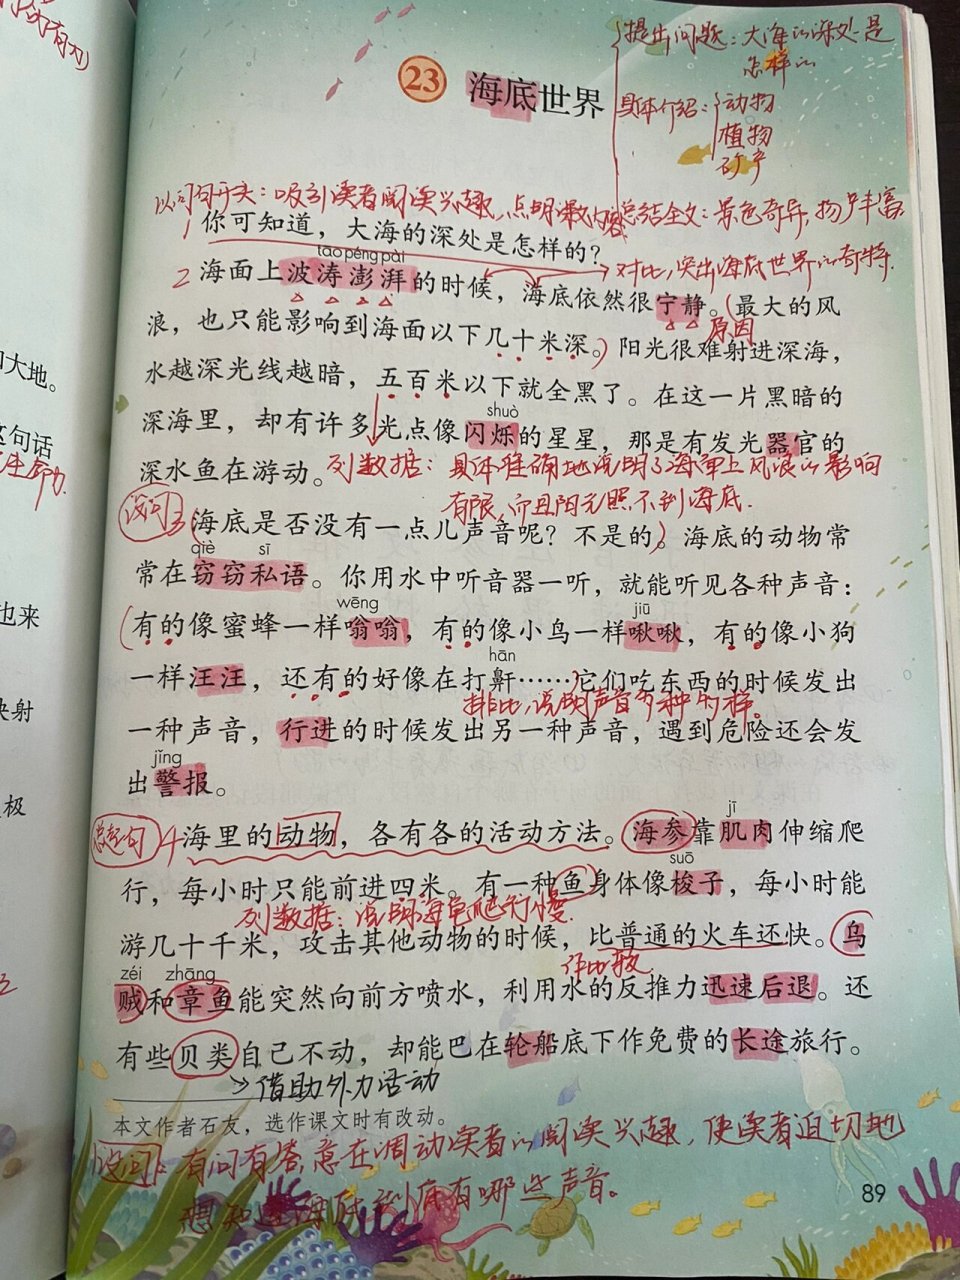 提出问题：大海的深处是
怎样的
23 海底世界
具体介绍：动物
植物
矿产
以问句开头：吸引读者阅读兴趣，点明课文内容
总结全文：景色奇异，物产丰富
你可知道，大海的深处是怎样的？
tāo péng pài
对比，突出海底世界的奇特.
2 海面上波涛澎湃的时候，海底依然很宁静。（最大的风
原因
浪，也只能影响到海面以下几十米深。）阳光很难射进深海，
水越深光线越暗，五百米以下就全黑了。在这一片黑暗的
shuò
深海里，却有许多光点像闪烁的星星，那是有发光器官的
深水鱼在游动。
列数据：具体准确地说明了海面上风浪的影响
有限，而且阳光照不到海底.
设问 3（海底是否没有一点儿声音呢？不是的）。海底的动物常
qiè sī
常在窃窃私语。你用水中听音器一听，就能听见各种声音：
wēng jiū
（有的像蜜蜂一样嗡嗡，有的像小鸟一样啾啾，有的像小狗
hān
一样汪汪，还有的好像在打鼾……）它们吃东西的时候发出
排比，说明声音多种多样。
一种声音，行进的时候发出另一种声音，遇到危险还会发
jǐng
出警报。
总起句 4 海里的动物，各有各的活动方法。海参靠肌肉伸缩爬
jī
suō
行，每小时只能前进四米。有一种鱼身体像梭子，每小时能
列数据：说明海参爬行慢.
游几十千米，攻击其他动物的时候，比普通的火车还快。乌
作比较
zéi zhāng
贼和章鱼能突然向前方喷水，利用水的反推力迅速后退。还
有些贝类自己不动，却能巴在轮船底下作免费的长途旅行。
借助外力活动
本文作者石友，选作课文时有改动。
设问：有问有答，意在调动读者的阅读兴趣，使读者迫切地
想知道海底到底有哪些声音。
89
和大地。
这句话
也来
映射
极